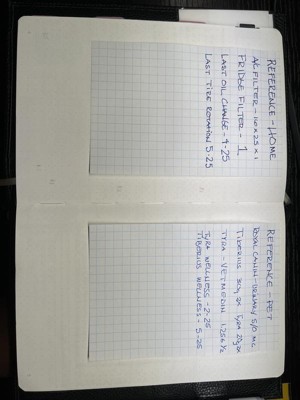 REFERENCE - HOME
A/C FILTER - 10 X 25 X 1
FRIDGE FILTER - 1
LAST OIL CHANGE - 9-25
LAST TIRE ROTATION 5-25
REFERENCE - PET
ROYAL CANIN - URINARY S/O MC
TIBERIUS 2X TYRA 2X
TYRA - VETMEDIN 1.25
TYRA WELLNESS - 2-25
TIBERIUS WELLNESS - 5-25